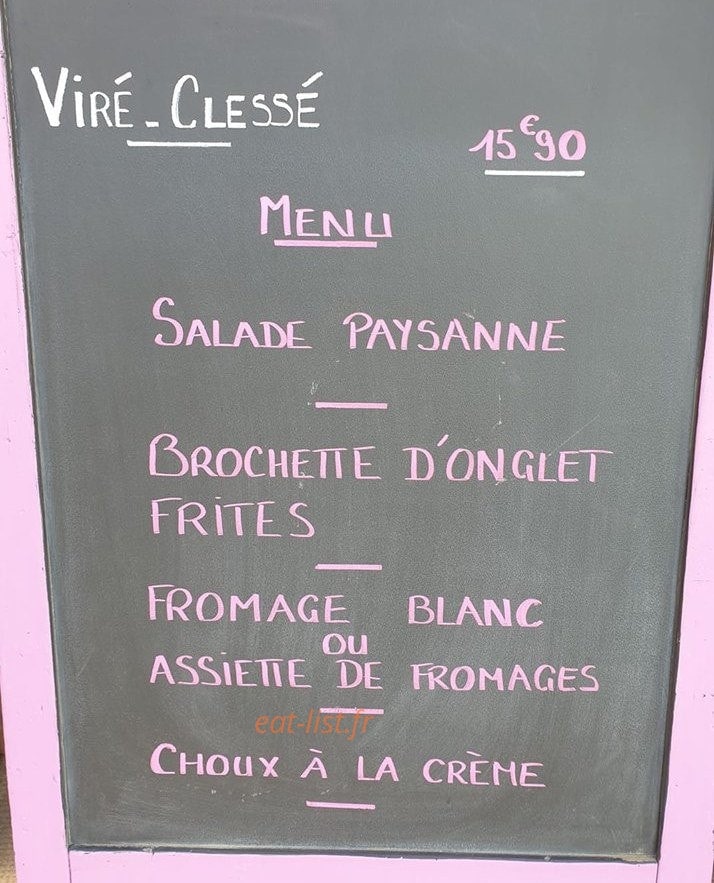 VIRÉ-CLESSÉ
15€90
MENU
SALADE PAYSANNE
BROCHETTE D'ONGLET
FRITES
FROMAGE BLANC
OU
ASSIETTE DE FROMAGES
eat-list.fr
CHOUX À LA CRÈME